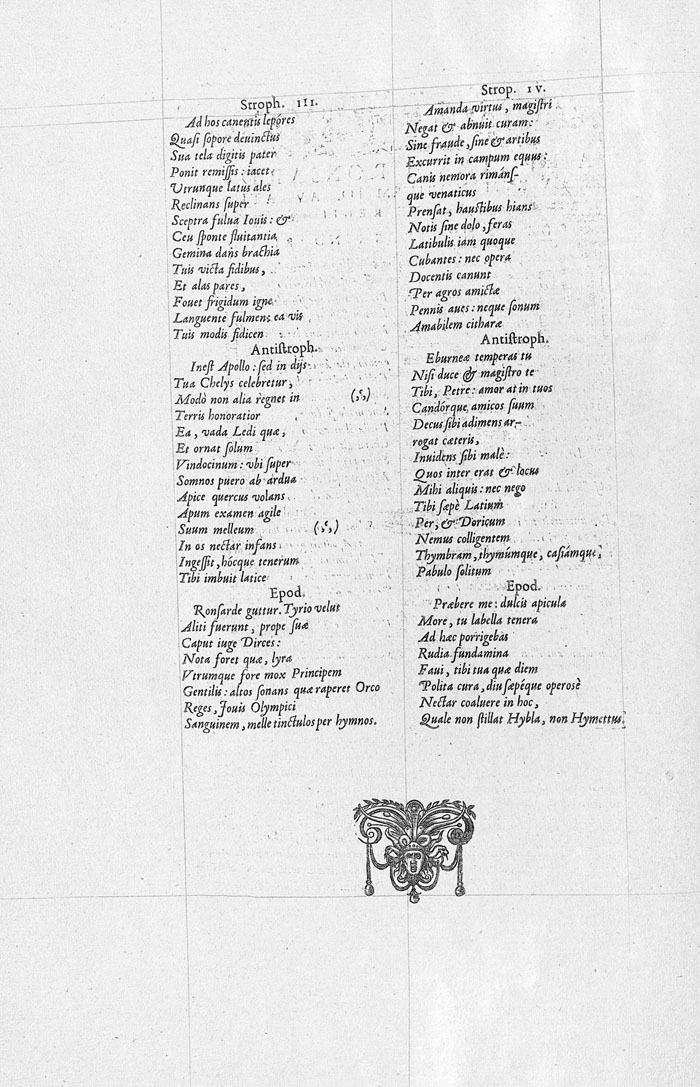 Stroph. III.
Ad hos canentis lepóres
Quasi sopore deuinctus
Sua tela digitis pater
Ponit remissis: iacet
Vtrunque latus ales
Reclinans super
Sceptra fulua Iouis: &
Ceu sponte fluitantia
Gemina dans brachia
Tuis victa fidibus,
Et alas pares,
Fouet frigidum igne
Languente fulmen: ea vis
Tuis modis fidicen
Antistroph.
Inest Apollo: sed in dijs
Tua Chelys celebretur,
Modò non alia regnet in
Terris honoratior
Ea, vada Ledi quæ,
Et ornat solum
Vindocinum: vbi super
Somnos puero ab ardua
Apice quercus volans
Apum examen agile
Suum melleum
In os nectar infans
Ingessit, hócque tenerum
Tibi imbuit latice
Epod.
Ronsarde guttur. Tyrio velut
Aliti fuerunt, prope suæ
Caput iuge Dirces:
Nota foret quæ, lyra
Vtrumque fore mox Principem
Gentilis: altos sonans quæ raperet Orco
Reges, Jouis Olympici
Sanguinem, melle tinctulos per hymnos.
Strop. IV.
Amanda virtus, magistri
Negat & abnuit curam:
Sine fraude, sine & artibus
Excurrit in campum equus:
Canis nemora rimáns-
que venaticus
Prensat, haustibus hians
Notis sine dolo, feras
Latibulis iam quoque
Cubantes: nec opera
Docentis canunt
Per agros amictæ
Pennis aues: neque sonum
Amabilem citharæ
Antistroph.
Eburneæ temperas tu
Nisi duce & magistro te
Tibi, Petre: amor at in tuos
Candórque amicos suum
Decus sibi adimens ar-
rogat cæteris,
Inuidens sibi malè:
Quos inter erat & locus
Mihi aliquis: nec nego
Tibi sæpè Latium
Per, & Doricum
Nemus colligentem
Thymbram, thymúmque, casiámque,
Pabulo solitum
Epod.
Præbere me: dulcis apicula
More, tu labella tenera
Ad hæc porrigebas
Rudia fundamina
Faui, tibi tua quæ diem
Polita cura, diu sæpéque operosè
Nectar coaluere in hoc,
Quale non stillat Hybla, non Hymettus.